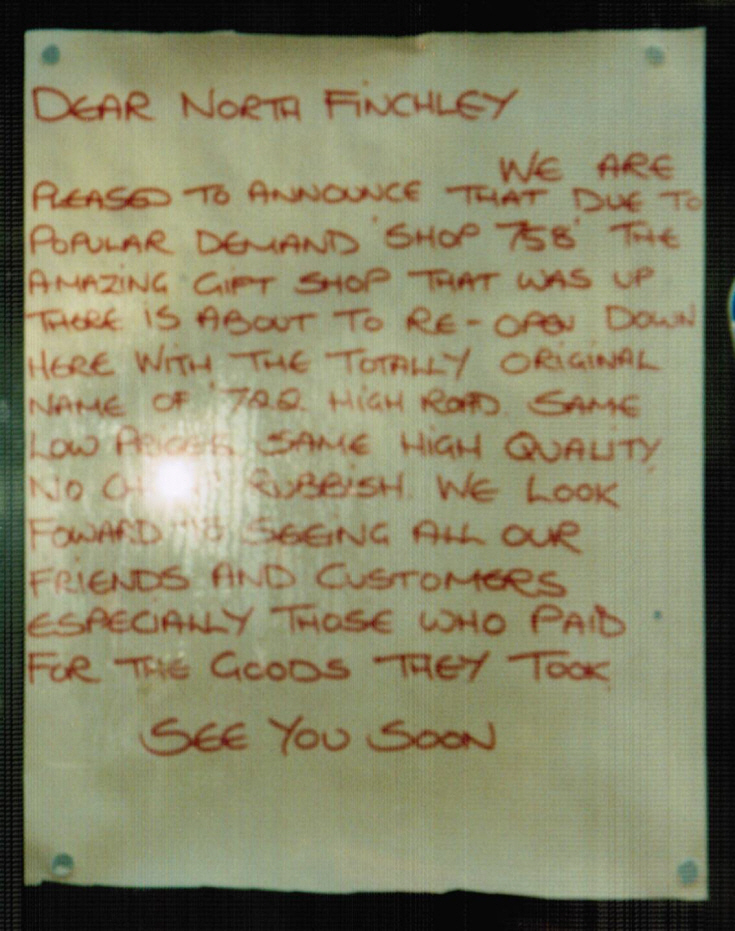 DEAR NORTH FINCHLEY
WE ARE
PLEASED TO ANNOUNCE THAT DUE TO
POPULAR DEMAND 'SHOP 758' THE
AMAZING GIFT SHOP THAT WAS UP
THERE IS ABOUT TO RE-OPEN DOWN
HERE WITH THE TOTALLY ORIGINAL
NAME OF HIGH ROAD. SAME
LOW PRICES SAME HIGH QUALITY
NO RUBBISH. WE LOOK
FOWARD TO SEEING ALL OUR
FRIENDS AND CUSTOMERS
ESPECIALLY THOSE WHO PAID
FOR THE GOODS THEY TOOK
SEE YOU SOON